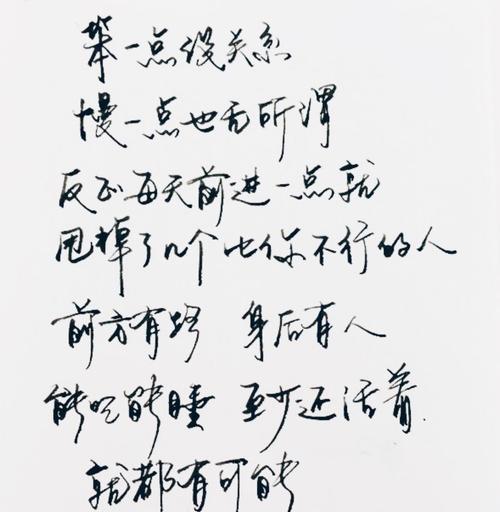 笨一点没关系
慢一点也无所谓
反正每天前进一点就
甩掉了几个比你不行的人
前方有路 身后有人
能吃能睡 至少还活着.
就都有可能